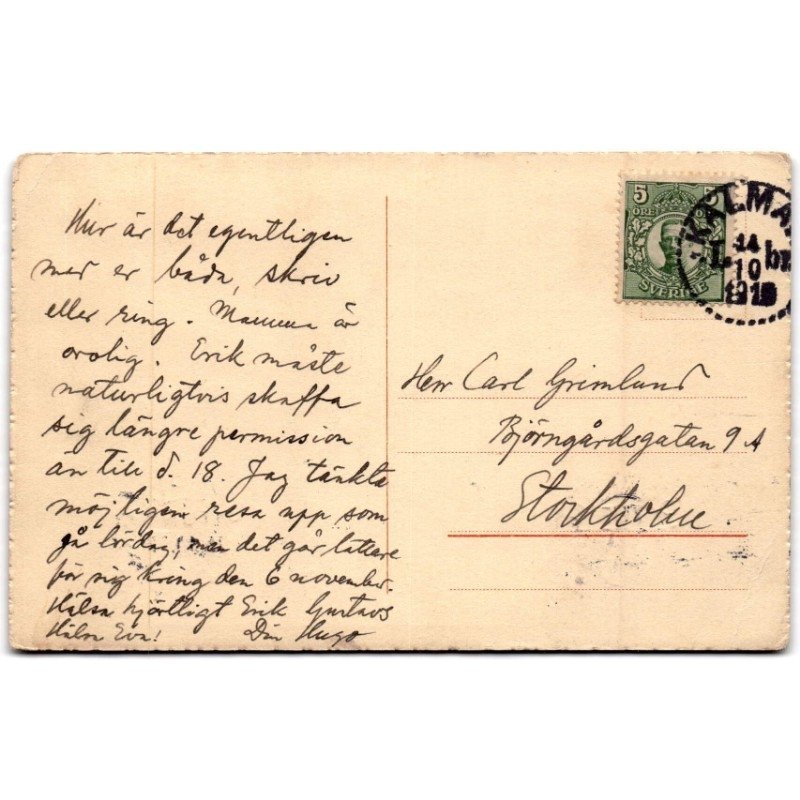 Hur är det egentligen
med er båda, skriv
eller ring. Mamma är
orolig. Erik måste
naturligtvis skaffa
sig längre permission
än till d. 18. Jag tänkte
möjligen resa upp som
på lördag, men det går lättare
för sig kring den 6 november.
Hälsa hjärtligt Erik Gustavs
Hälsa Eva! Din Hugo
5
ÖRE
SVERIGE
KALMAR
L. br.
14
10
Herr Carl Grimlund
Björngårdsgatan 9 A
Stockholm.